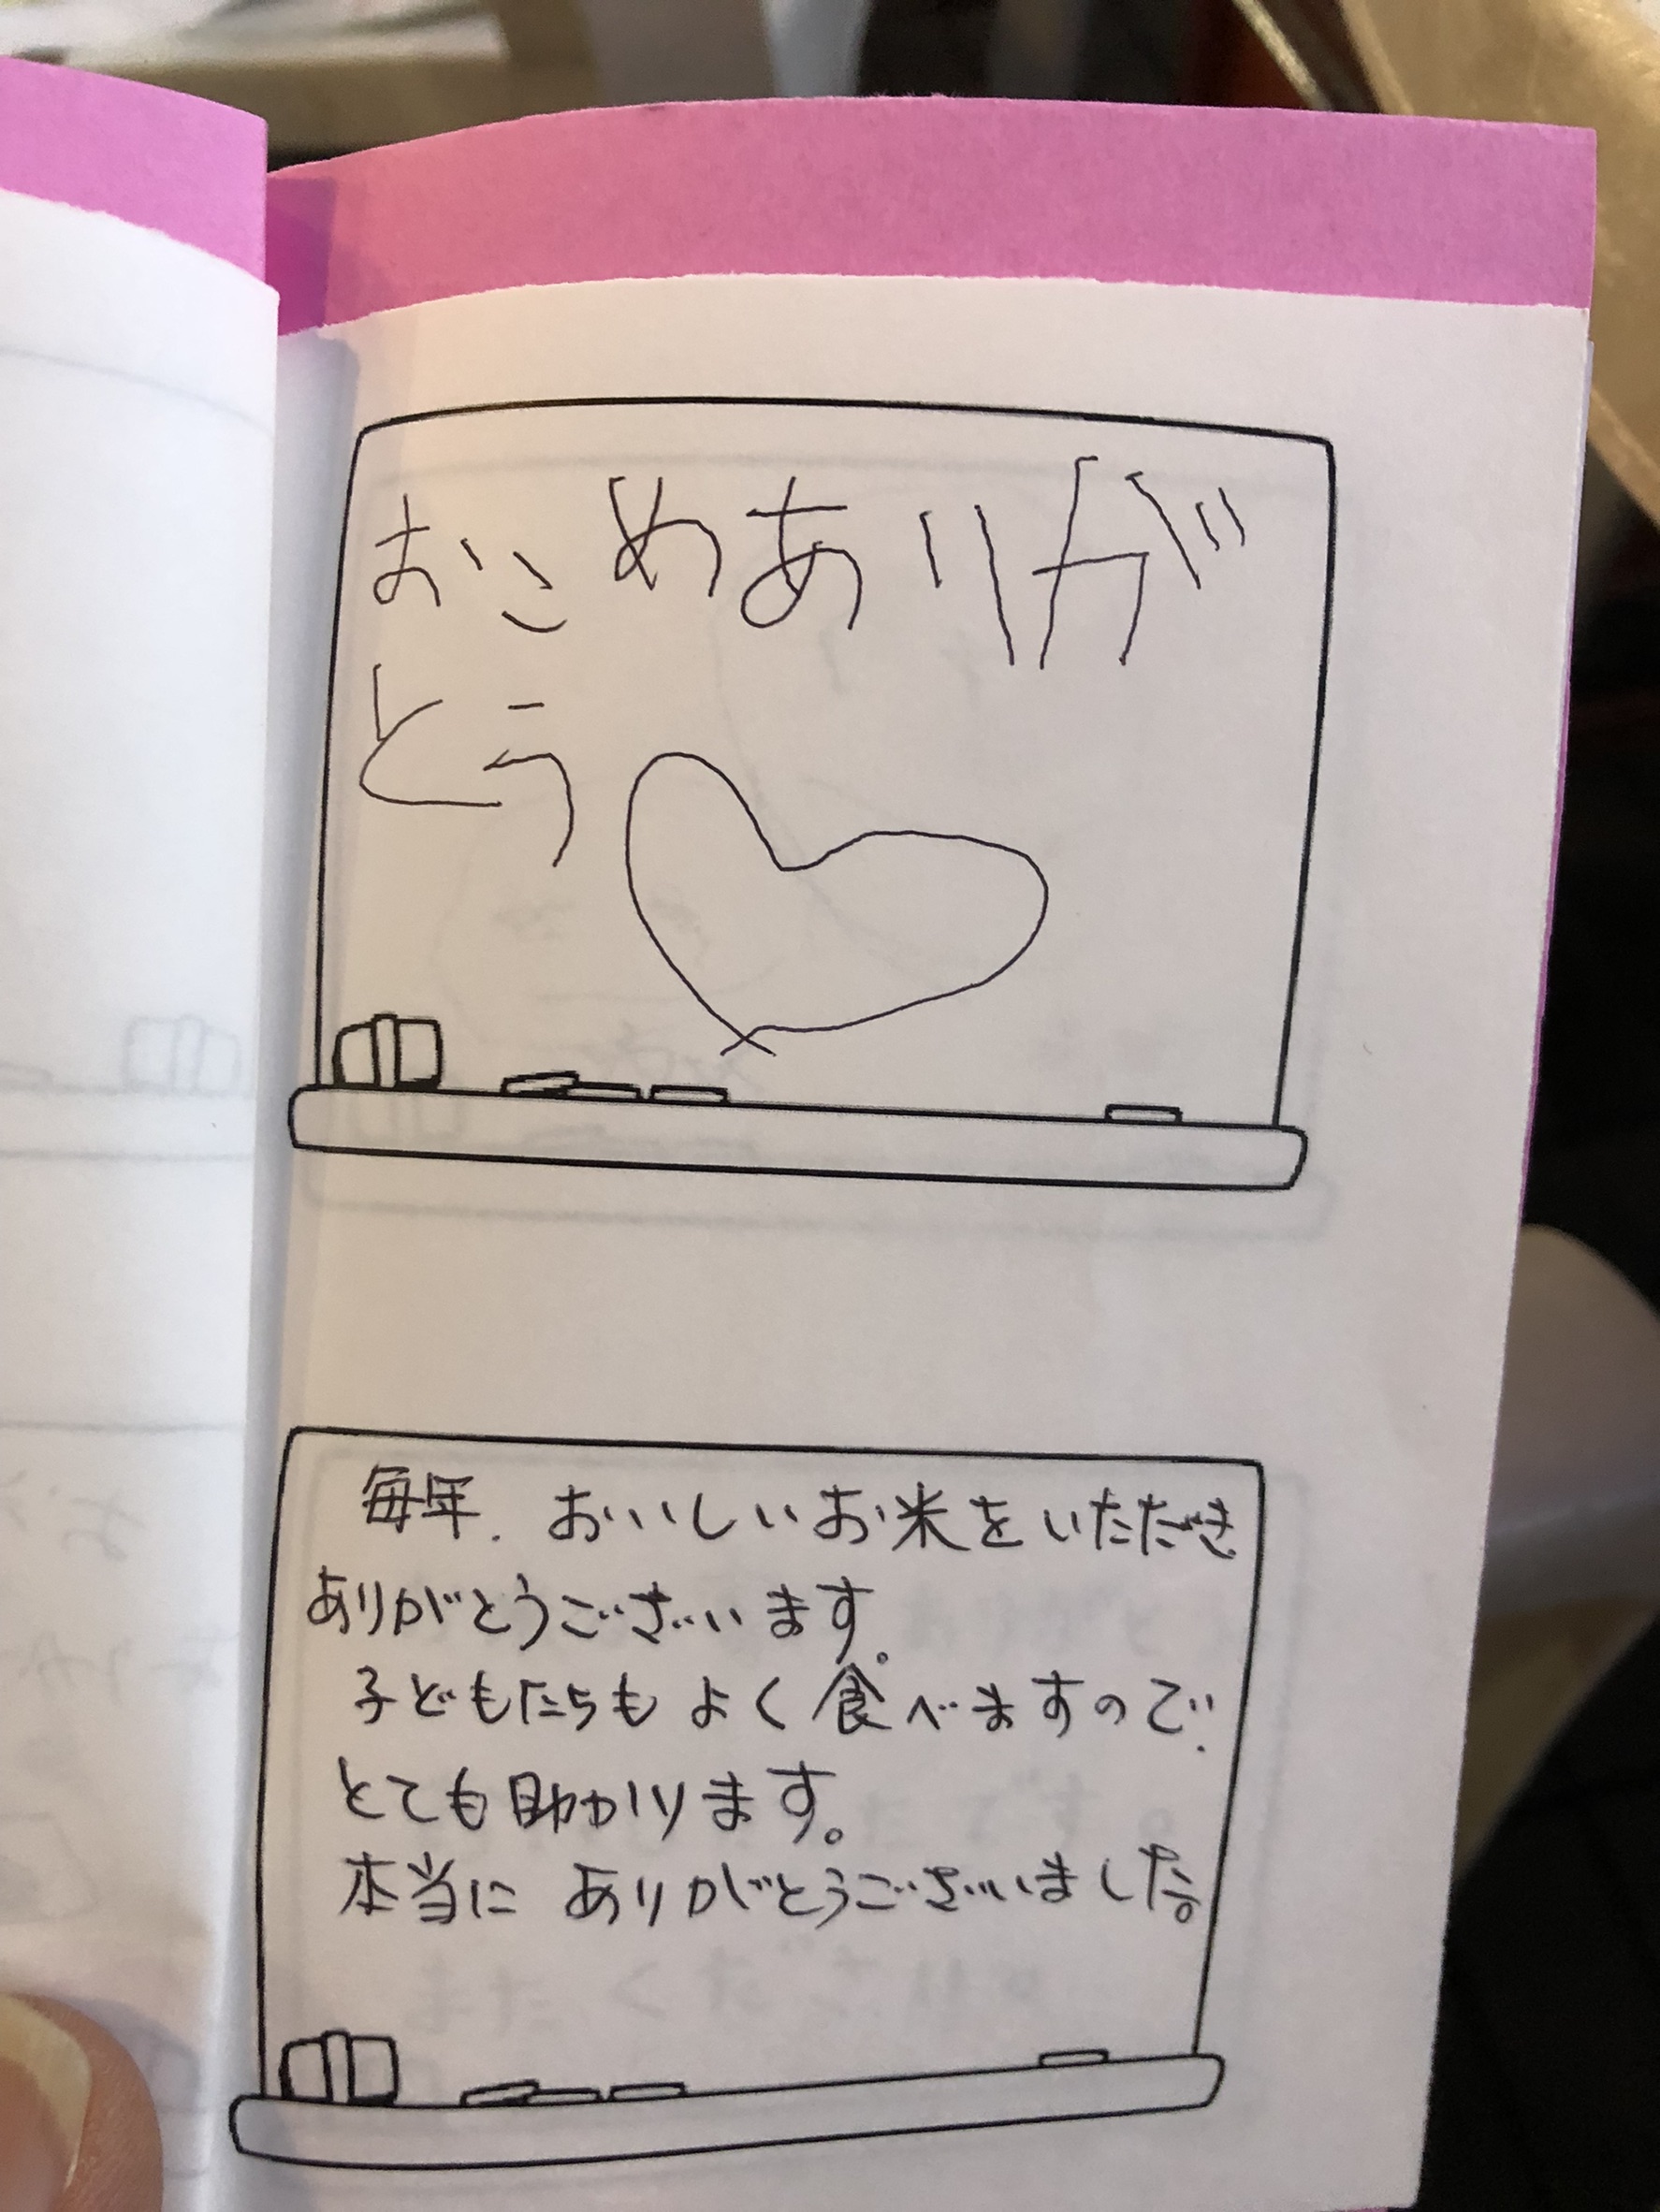 おこめありが
とう
毎年、おいしいお米をいただき
ありがとうございます。
子どもたちもよく食べますので、
とても助かります。
本当に ありがとうございました。